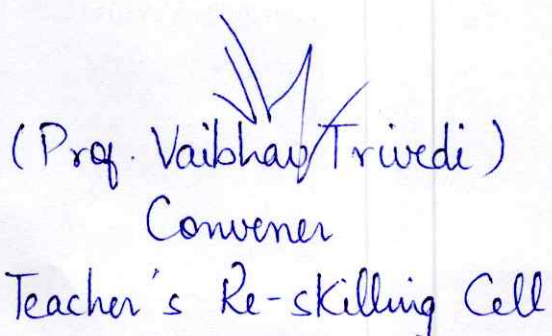 (Prof. Vaibhav Trivedi)
Convener
Teacher's Re-skilling Cell